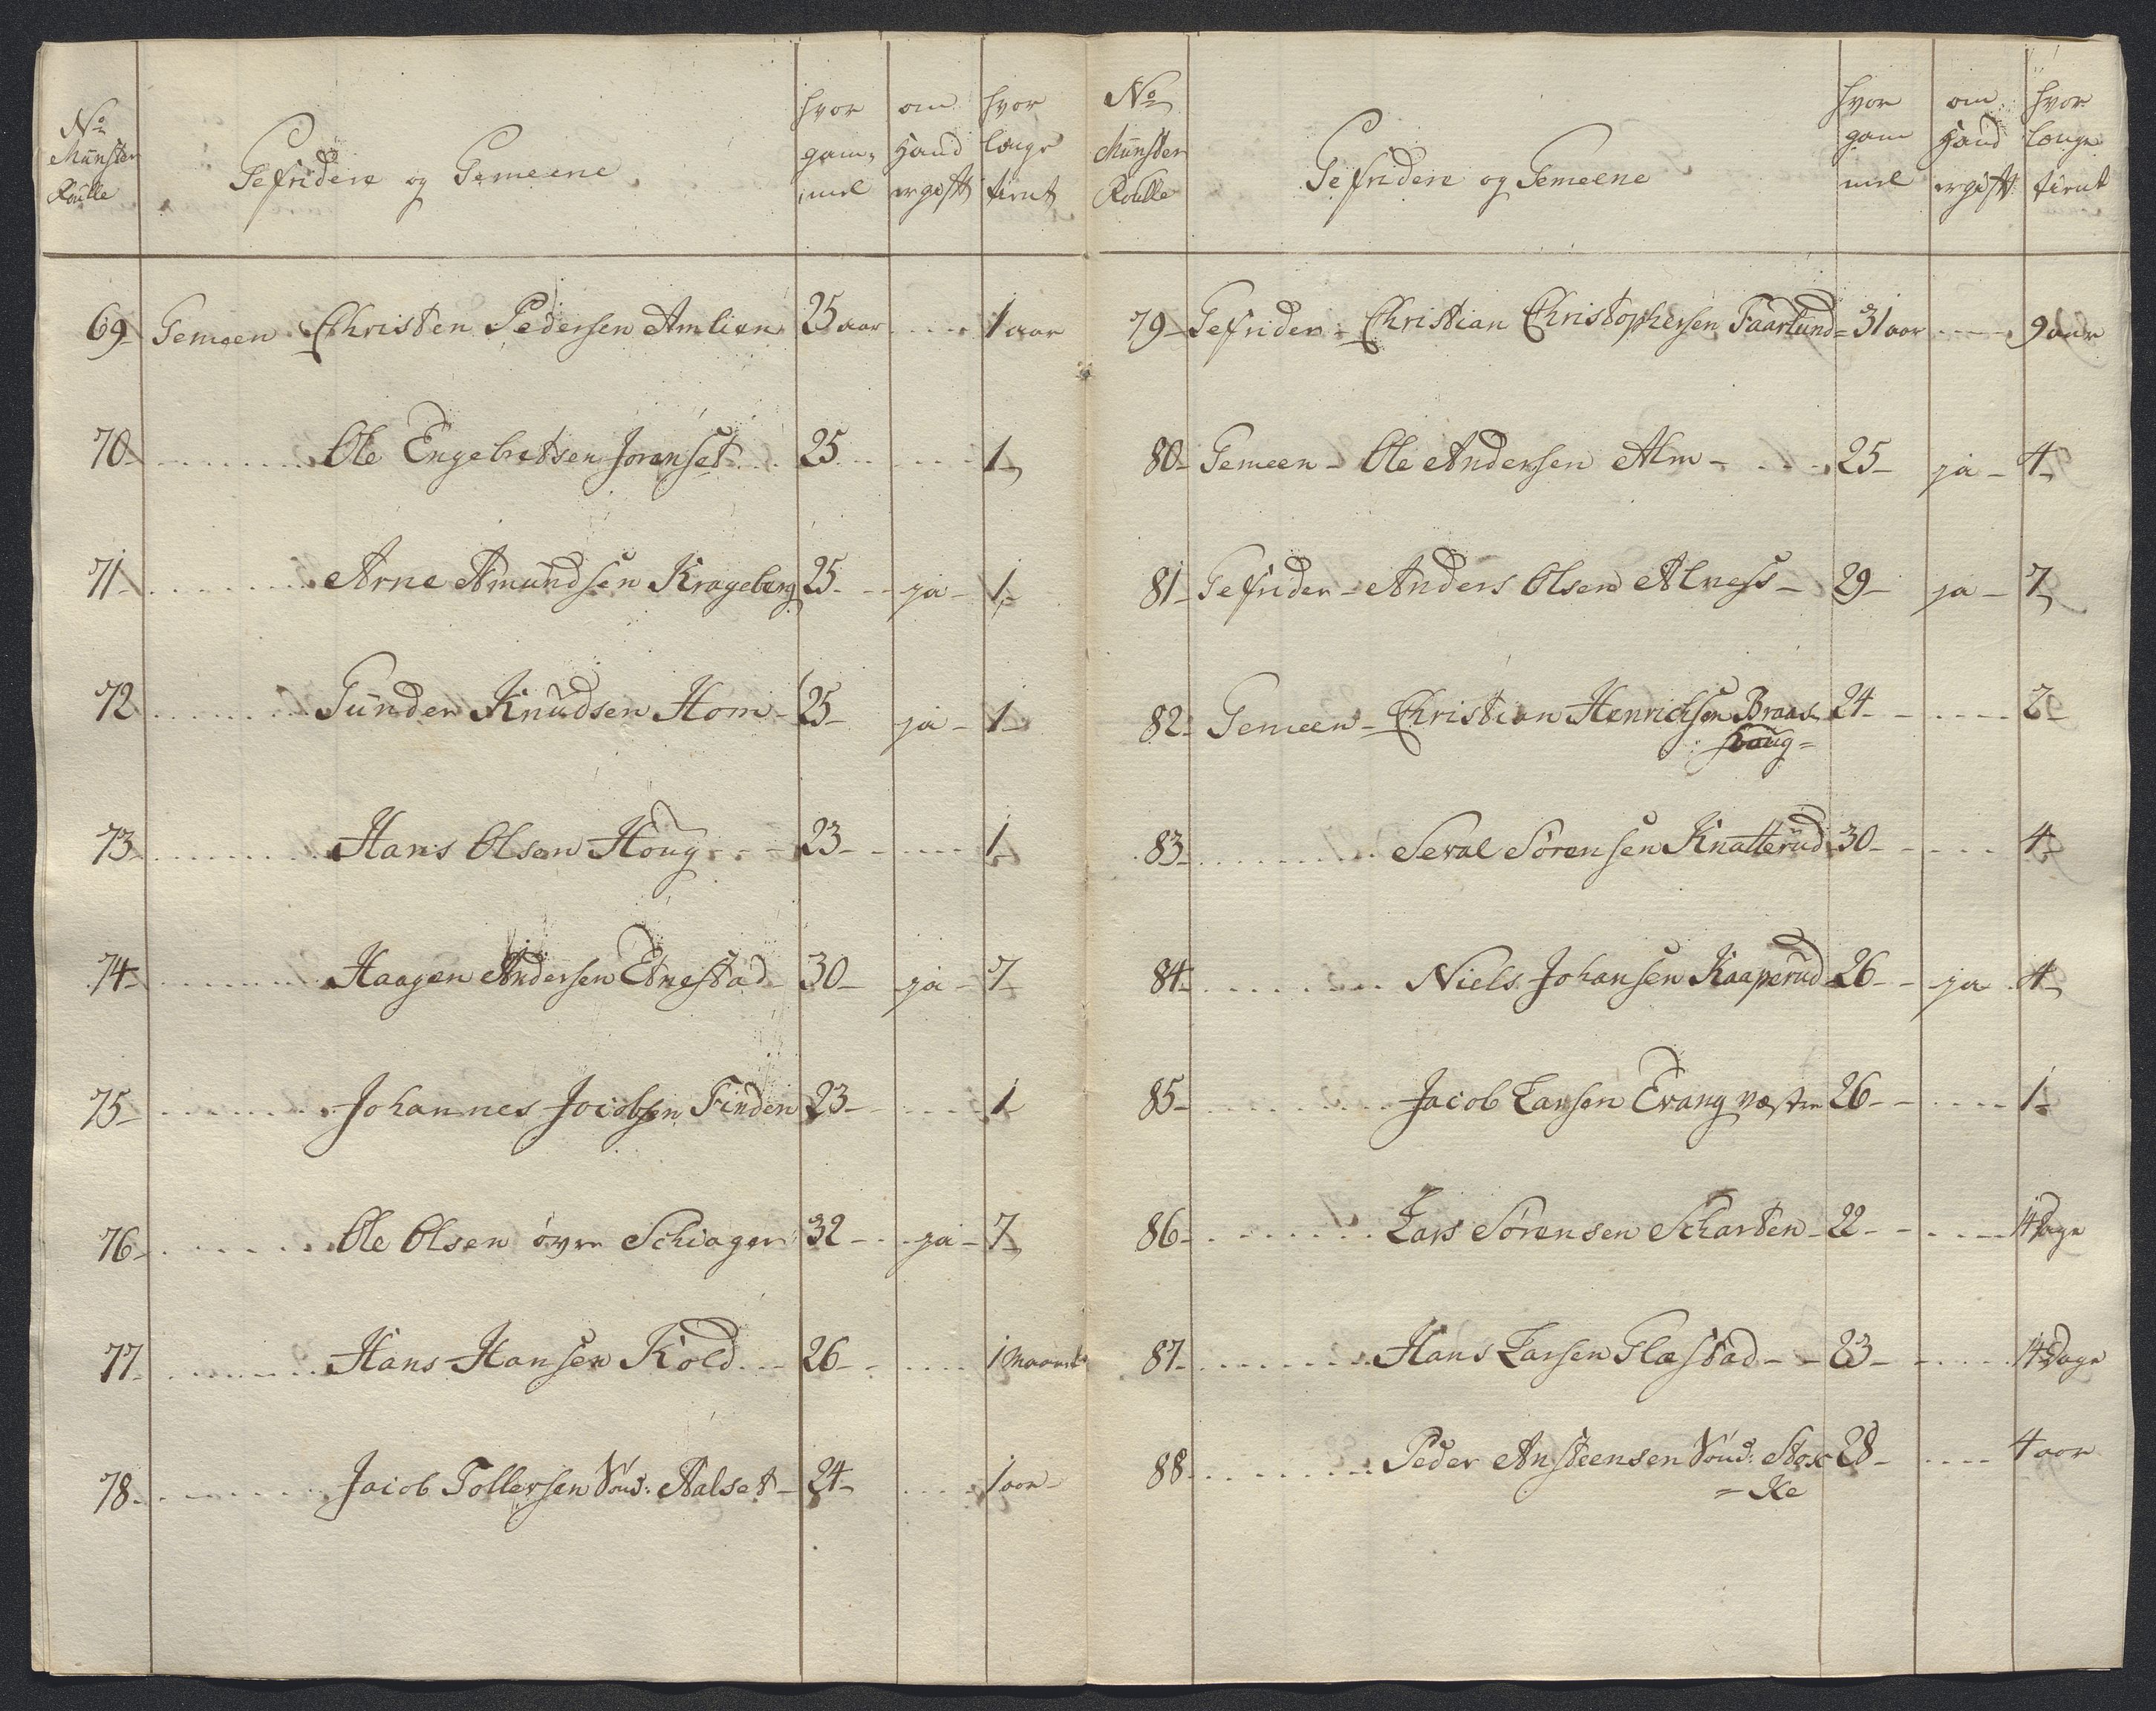 No
Munster
Roulle
Gefridere og Gemeene
hvor
gam,
mel
om
Hand
er gift
hvor
længe
tient
69 Gemeen Christen Pedersen Amlien 25 aar .... 1 aar
70 ........ Ole Engebretsen Joranset ... 25 ... .... 1
71 ........ Arne Amundsen Krageberg 25 - - ja - 1
72 ........ Gunder Knudsen Hom - 25 - ja - 1
73 ........ Hans Olsen Houg - - - 23 - .... 1
74 ........ Haagen Andersen Etnestad - 30 - ja - 7
75 ........ Johannes Jocobsen Finden 23 - .... 1
76 ........ Ole Olsen övre Schiager 32 - - ja - 7
77 ........ Hans Hansen Kold ... 26 - .... 1 Maanet
78 ........ Jacob Tollersen Sönd: Aalset - 24 - .... 1 aar
No
Munster
Roulle
Gefridere og Gemeene
hvor
gam
mel
om
Hand
er gift
hvor
længe
tient
79 Gefrider - Christian Christophersen Faarlund = 31 aar .... 9 aar
80 Gemeen - Ole Andersen Alm - ... 25 - ja - 4
81 Gefrider - Anders Olsen Alness - 29 - ja - 7
82 Gemeen - Christian Henrichsen Braas 24 - .... 2
houg =
83 ........ Seval Sörensen Knatterud 30 - .... 4
84 ........ Niels Johansen Kaaperud 26 - - ja 4
85 ........ Jacob Larsen Evang væstre 26 - .... 1
86 ........ Lars Sörensen Scharten - 22 - .... 14 Dage
87 ........ Hans Larsen Glæstad - - 23 - .... 14 Dage
88 ........ Peder Ansteensen Sönd: Stox 28 - .... 4 aar
= Ke